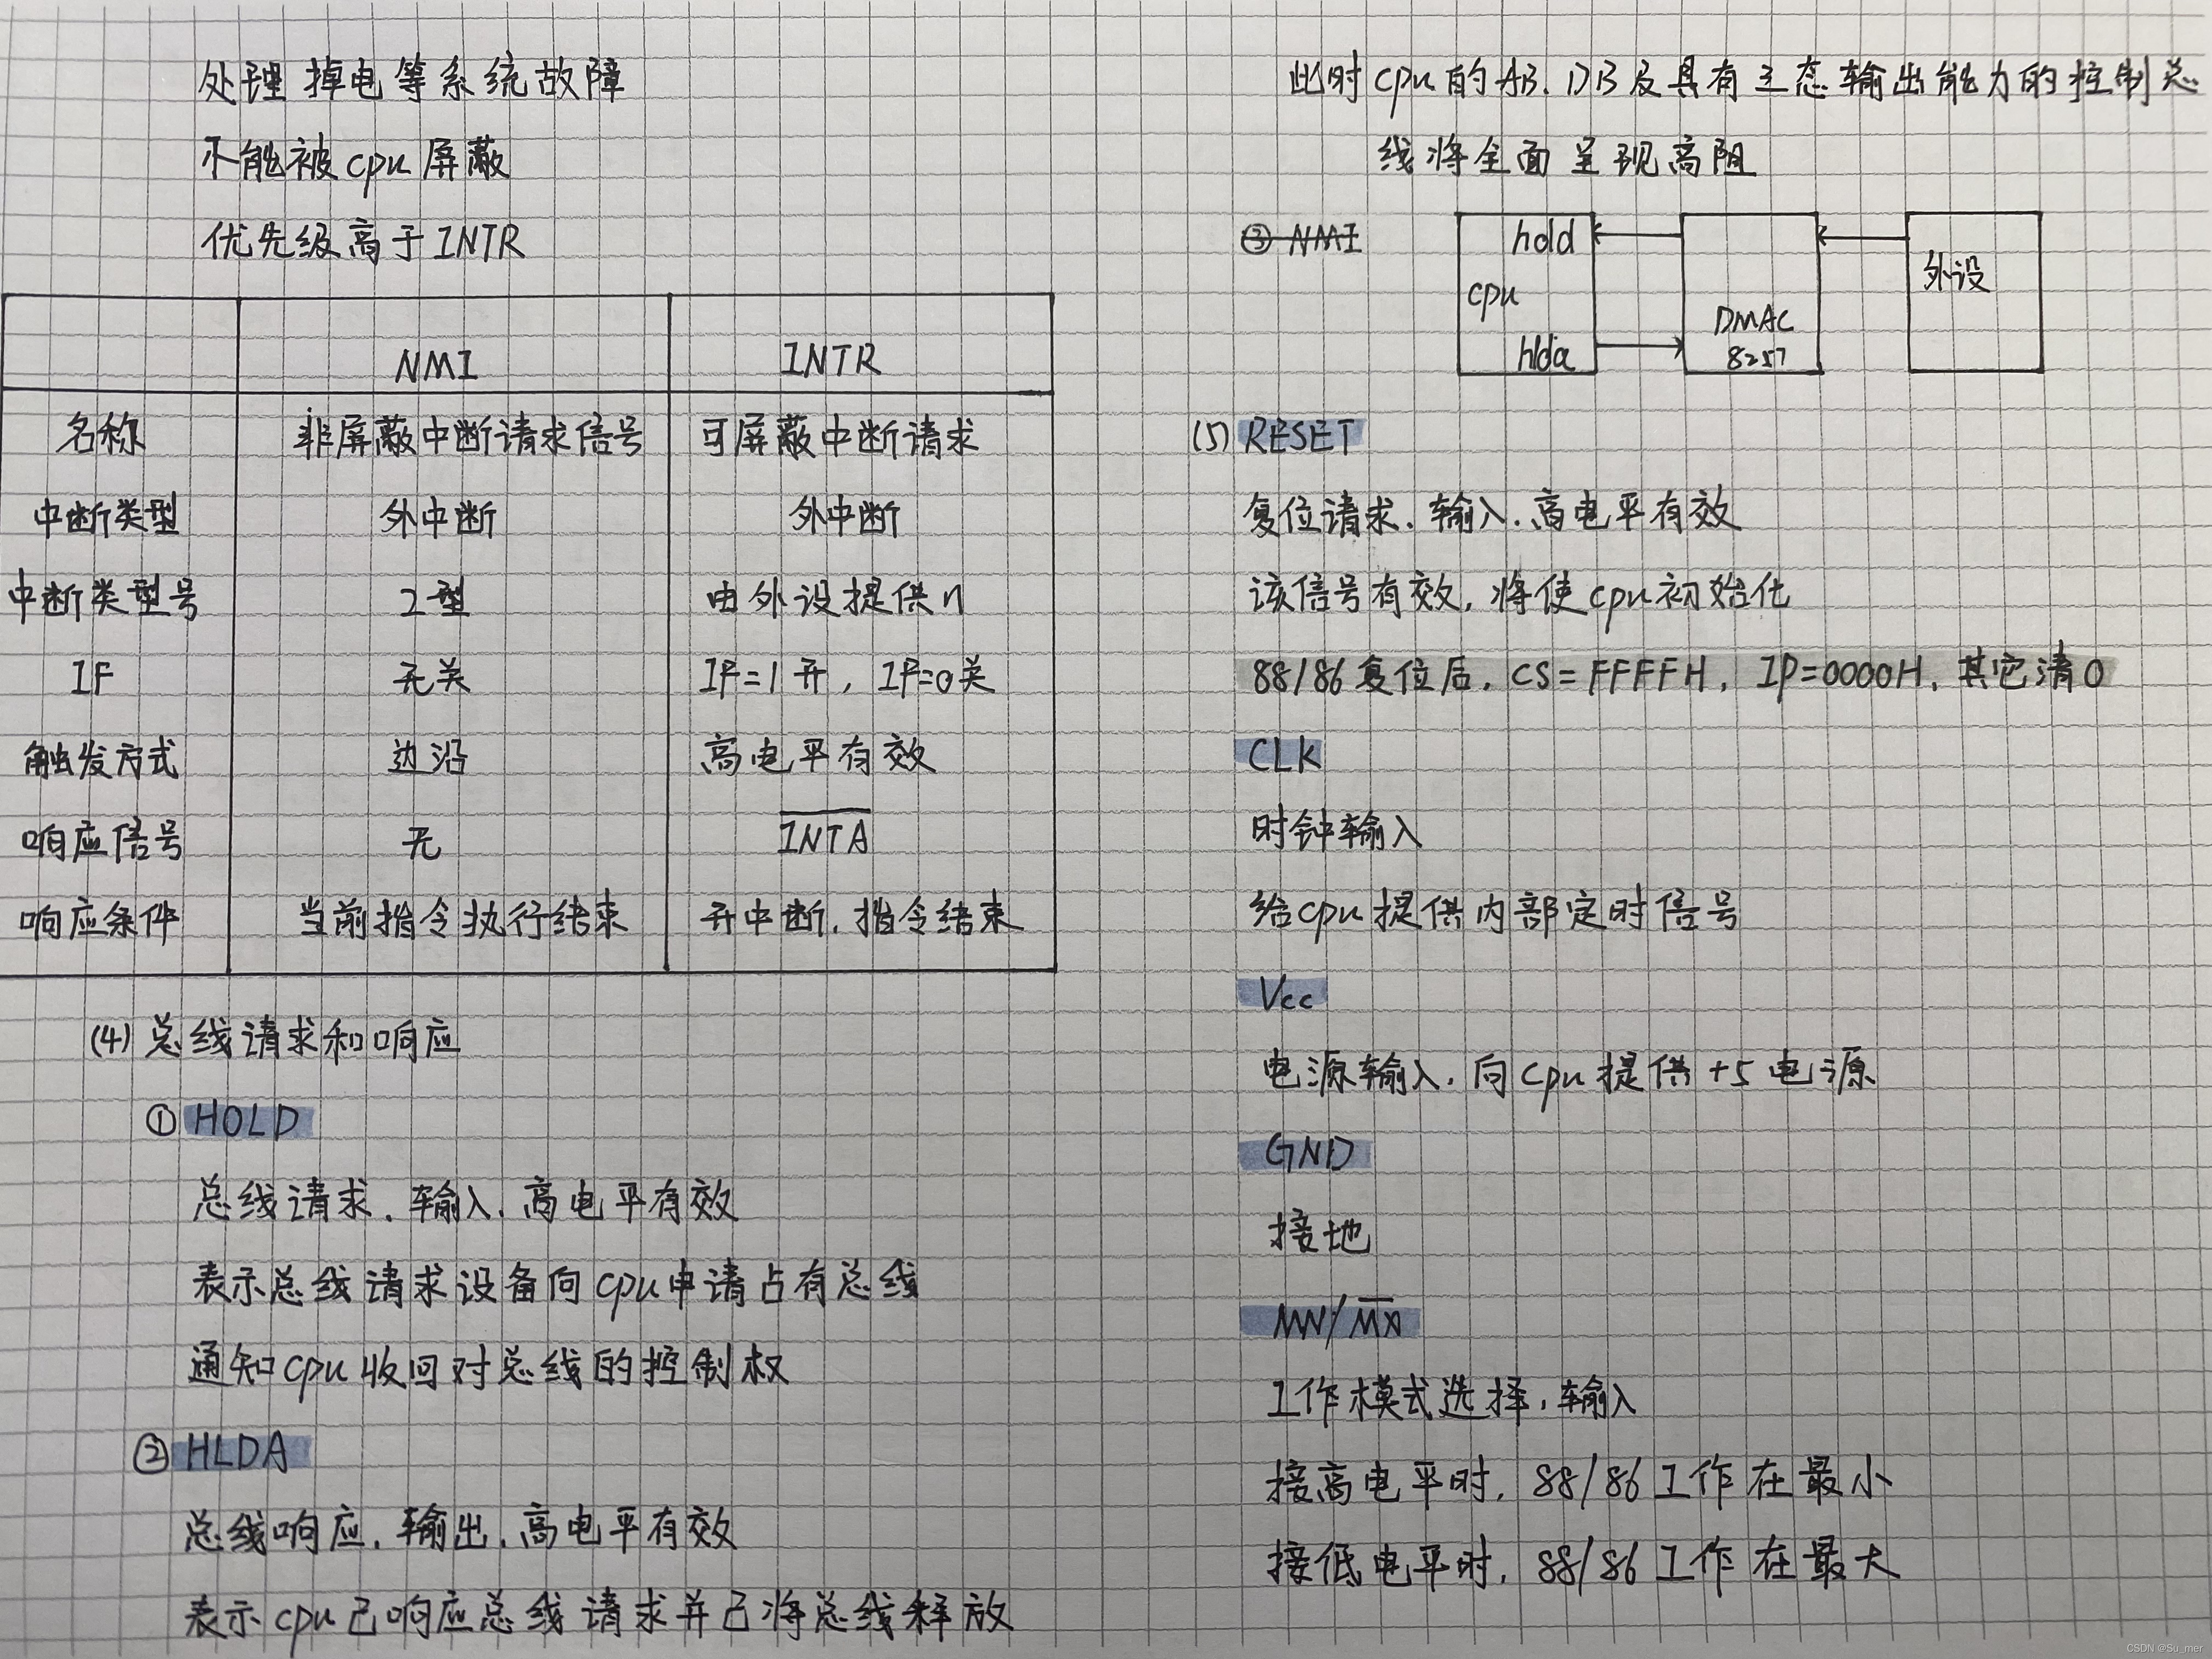 处理掉电等系统故障
不能被cpu屏蔽
优先级高于INTR
NMI INTR
名称 非屏蔽中断请求信号 可屏蔽中断请求
中断类型 外中断 外中断
中断类型号 2型 由外设提供n
IF 无关 IF=1开，IF=0关
触发方式 边沿 高电平有效
响应信号 无 I̅N̅T̅A̅
响应条件 当前指令执行结束 开中断.指令结束
(4)总线请求和响应
①HOLD
总线请求.输入.高电平有效
表示总线请求设备向cpu申请占有总线
通知cpu收回对总线的控制权
②HLDA
总线响应.输出.高电平有效
表示cpu已响应总线请求并已将总线释放
此时cpu的AB.DB及具有三态输出能力的控制总
线将全面呈现高阻
③NMI
hold
cpu
hlda
DMAC
8257
外设
(5)RESET
复位请求.输入.高电平有效
该信号有效,将使cpu初始化
88/86复位后,CS=FFFFH,IP=0000H,其它清0
CLK
时钟输入
给cpu提供内部定时信号
Vcc
电源输入.向cpu提供+5电源
GND
接地
MN/M̅X̅
工作模式选择,输入
接高电平时,88/86工作在最小
接低电平时,88/86工作在最大
CSDN @Su_mer